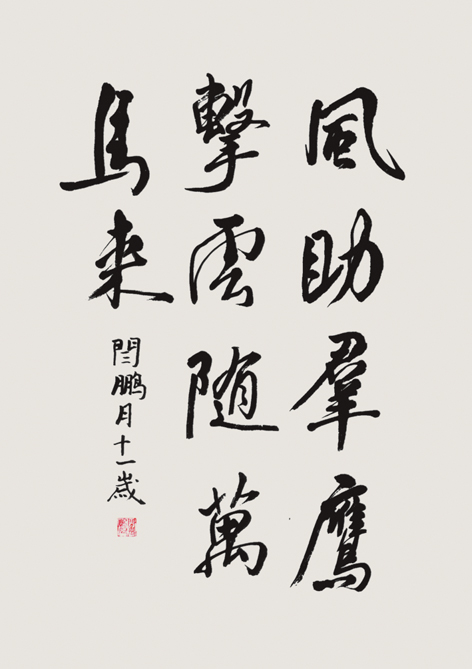 風助羣鷹
擊雲随萬
馬来
閆鵬月十一歲